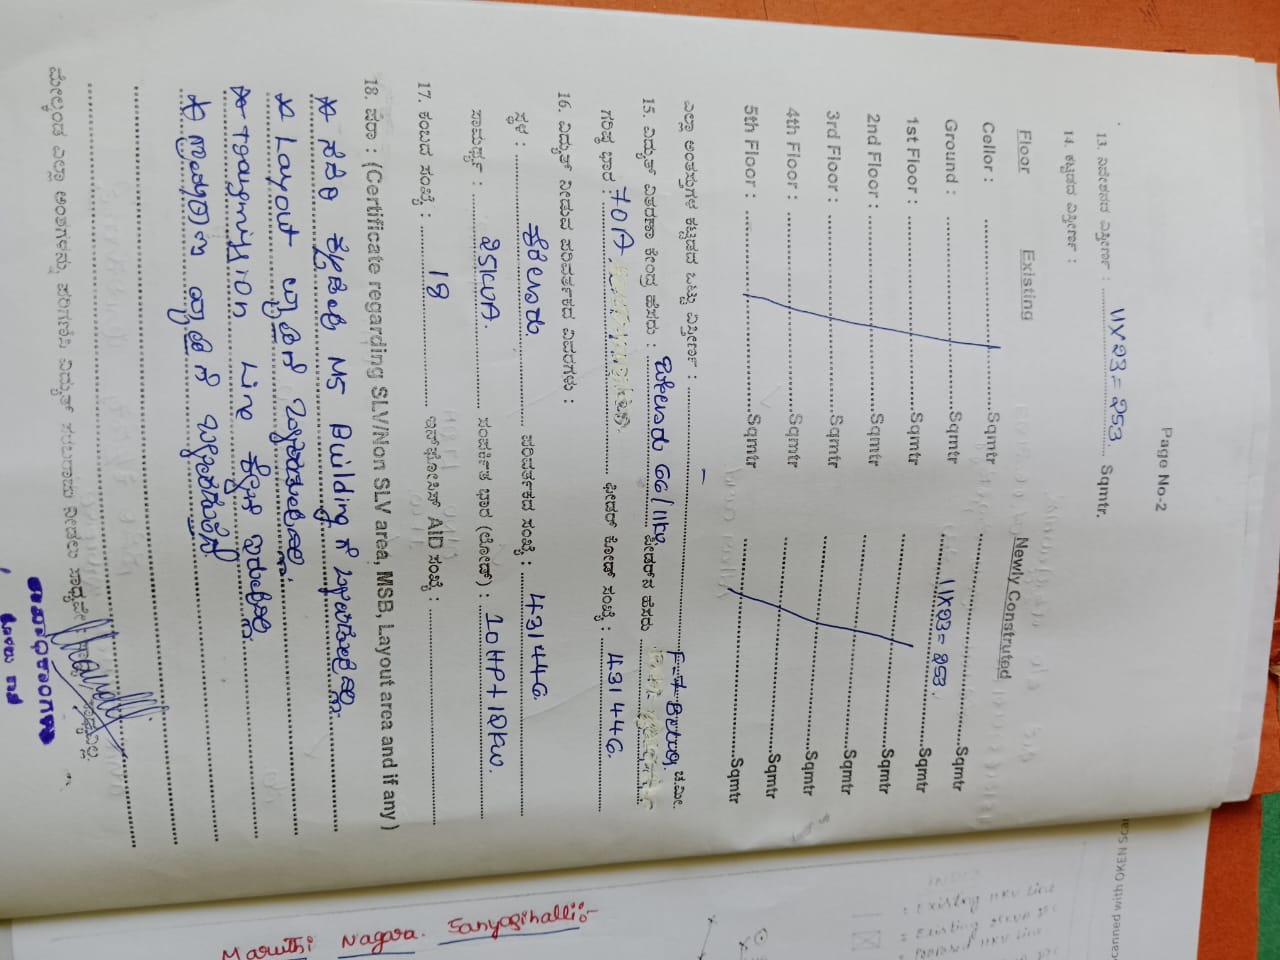 Page No-2
13. ನಿವೇಶನದ ವಿಸ್ತೀರ್ಣ : 11X23=253. Sqmtr.
14. ಕಟ್ಟಡದ ವಿಸ್ತೀರ್ಣ :
Floor Existing Newly Construted
Cellor : Sqmtr Sqmtr
Ground : Sqmtr 11X23=253. Sqmtr
1st Floor : Sqmtr Sqmtr
2nd Floor : Sqmtr Sqmtr
3rd Floor : Sqmtr Sqmtr
4th Floor : Sqmtr Sqmtr
5th Floor : Sqmtr Sqmtr
ಎಲ್ಲಾ ಅಂತಸ್ತುಗಳ ಕಟ್ಟಡದ ಒಟ್ಟು ವಿಸ್ತೀರ್ಣ : ಚ.ಮೀ.
15. ವಿದ್ಯುತ್ ವಿತರಣಾ ಕೇಂದ್ರ ಹೆಸರು : ಬೇಲೂರು 66/11KV ಫೀಡರ್‌ನ ಹೆಸರು F-7
ಗರಿಷ್ಠ ಭಾರ : 70A. ಫೀಡರ್ ಕೋಡ್ ಸಂಖ್ಯೆ : 431446.
16. ವಿದ್ಯುತ್ ನೀಡುವ ಪರಿವರ್ತಕದ ವಿವರಗಳು :
ಸ್ಥಳ : ಪರಿವರ್ತಕದ ಸಂಖ್ಯೆ : 431446.
ಸಾಮರ್ಥ್ಯ : 25KVA. ಸಂಪರ್ಕಿತ ಭಾರ (ಲೋಡ್) : 10HP+12KW.
17. ಕಂಬದ ಸಂಖ್ಯೆ : 18 ಇನ್‌ಫೋಸಿಸ್ AID ಸಂಖ್ಯೆ :
18. ಷರಾ : (Certificate regarding SLV/Non SLV area, MSB, Layout area and if any)
* ಸದರಿ ಕಟ್ಟಡವು MS Building ಗೆ ಒಳಪಡುವುದಿಲ್ಲ.
* Layout ವ್ಯಾಪ್ತಿಗೆ ಒಳಪಡುವುದಿಲ್ಲ.
* Transmission Line ಕೆಳಗೆ ಇರುವುದಿಲ್ಲ
* ಗ್ರಾಮಠಾಣಾ ವ್ಯಾಪ್ತಿಗೆ
ಮೇಲ್ಕಂಡ ಎಲ್ಲಾ ಅಂಶಗಳನ್ನು ಪರಿಗಣಿಸಿ ವಿದ್ಯುತ್ ಸರಬರಾಜು ನೀಡಲು ಸಾಧ್ಯವಿದೆ/ ಸಾಧ್ಯವಿಲ್ಲ.
Maruthi Nagara. Sanyasihalli:-